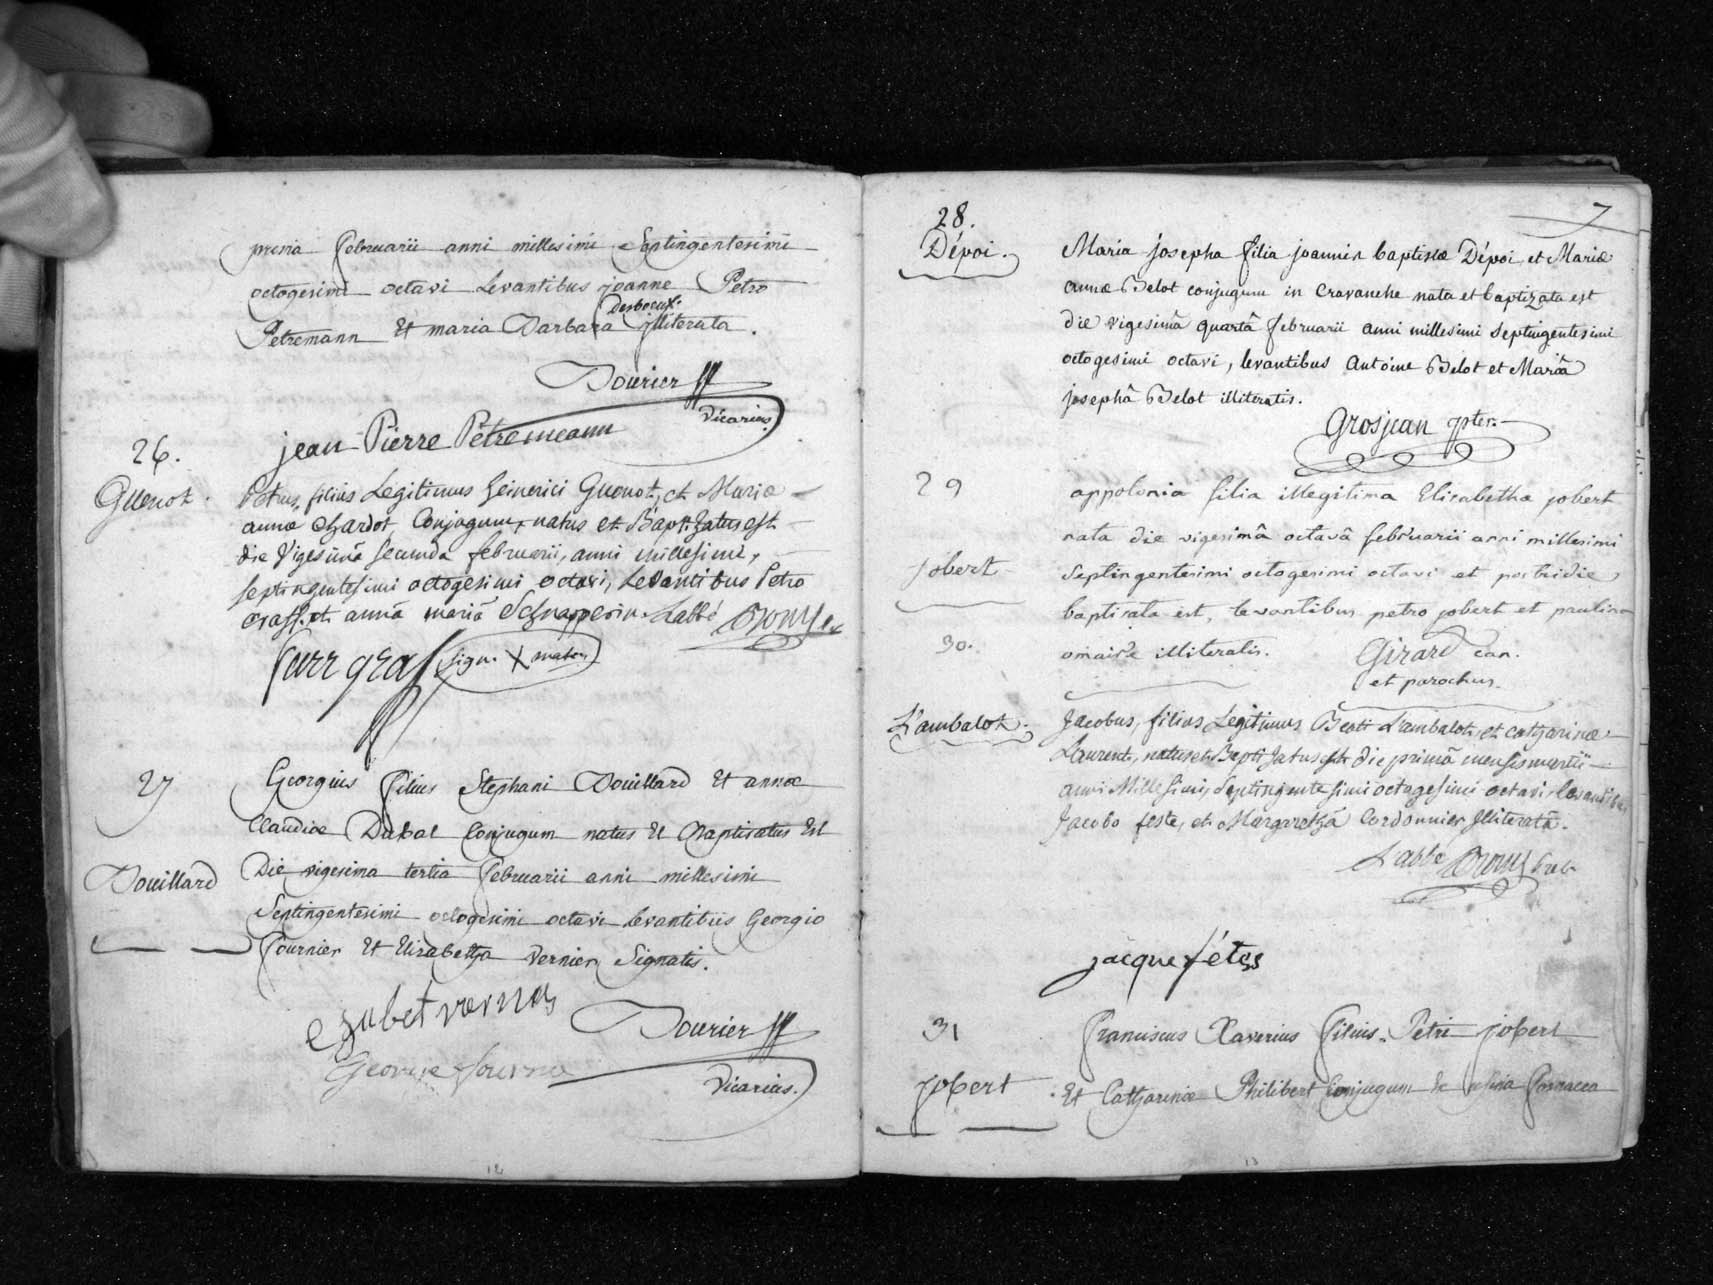 prima februarii anni millesimi Septingentesimi
octogesimi octavi Levantibus joanne Petro
Desboeux.
Petremann Et maria Barbara illiterata.
Bourier
Vicarius.
jean Pierre Petremeann
26.
Guenot.
Petrus, filius Legitimus heinerici Guenot, et Mariæ
annæ Chardot, Conjugum, natus et Baptizatus est
die Vigesimâ Secunda februarii, anni millesimi,
septingentesimi octogesimi octavi, Levantibus Petro
Graff. et annâ mariâ Schnapperin. Labbé
sign. X matris
27
Georgius filius Stephani Bouillard Et annæ
Claudiæ Dubal Conjugum natus Et Baptisatus Est
Bouillard
Die vigesima tertia februarii anni millesimi
Septingentesimi octogesimi octavi levantibus Georgio
fournier Et Elisabetha vernier Signatis.
Bourier
George fourni
Vicarius.
12
7
28.
Dépoi.
Maria josepha filia joannis baptistæ Dépoi, et Mariæ
annæ Belot conjugum in Cravanche nata et baptizata est
die vigesimâ quartâ februarii anni millesimi septingentesimi
octogesimi octavi, levantibus Antoine Belot et Mariâ
josephâ Belot illiteratis.
Grosjean pter.
29
appolonia filia illegitima Elisabethæ jobert
nata die vigesimâ octavâ februarii anni millesimi
jobert
Septingentesimi octogesimi octavi et postridie
baptisata est, levantibus petro jobert et paulina
30.
illiteratis.
Girard can.
et parochus.
L'ambalot.
Jacobus, filius Legitimus Beati L'ambalot, et catharinæ
Laurent, natus et Baptizatus est die primâ mensis martii
anni Millesimi, Septingentesimi octogesimi octavi, levantibus
Jacobo feste, et Margarethâ Cordonnier Illiteratâ.
Labbé
jacque fétes
31
franciscus Xaverius filius Petri jobert
jobert
Et Catharinæ Philibert Conjugum
13